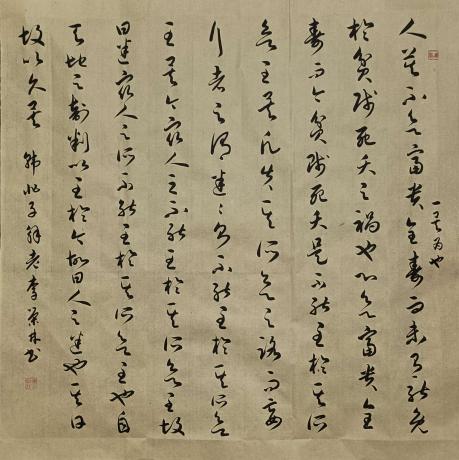 人莫不欲富貴全壽而未有能免
一矣为也
於貧賤死夭之禍也心欲富貴全
壽而今貧賤死夭是不能至於其所
欲至矣凡失其所欲之路而妄
行者之謂迷迷則不能至於其所欲
至矣今眾人之不能至於其所欲至故
曰迷眾人之所不能至於其所欲至也自
天地之剖判以至於今故曰人之迷也其日
故以久矣 韓非子解老李榮林书